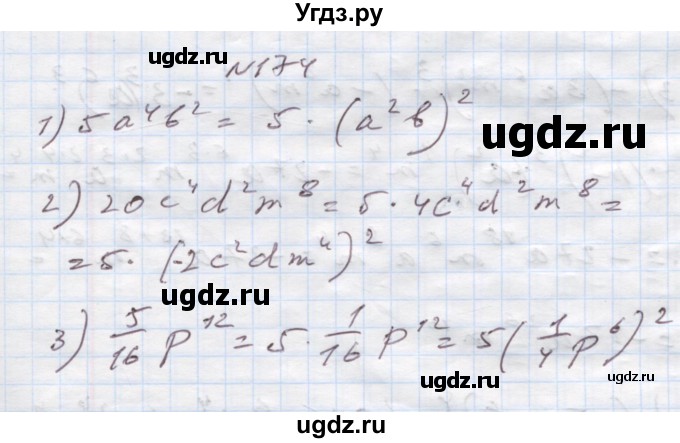 Угдз.ру
ugdz.ru ugdz.ru
№174
1) 5a⁴b² = 5 · (a²b)²
ugdz.ru
ugdz.ru
2) 20c⁴d²m⁸ = 5 · 4c⁴d²m⁸ =
= 5 · (-2c²dm⁴)²
ugdz.ru
ugdz.ru
3) 5/16 p¹² = 5 · 1/16 p¹² = 5(1/4 p⁶)²
ugdz.ru
ugdz.ru
ugdz.ru